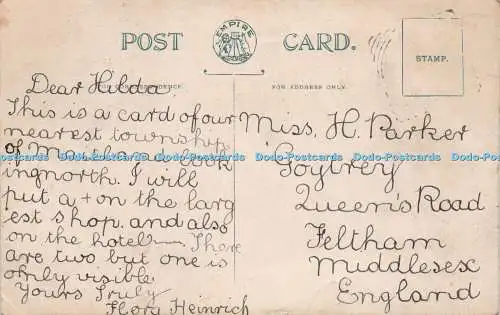 POST CARD.
EMPIRE
STAMP.
FOR ADDRESS ONLY.
Dear Hilda
This is a card of our
nearest township
of Maitland look
ingnorth. I will
put a + on the larg
est shop. and also
on the hotel. There
are two but one is
only visible.
Yours Truly
Flory Heinrich
Miss. H. Parker
Queen's Road
Feltham
Middlesex
England
Dodo-Postcards Dodo-Postcards Dodo-Postcards Dodo-Postcards